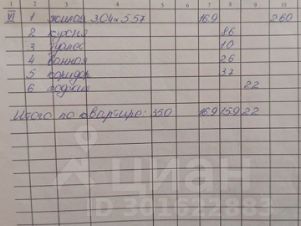 1 2 3 4 5 6 7 8 9 10
VI 1 жилая 3,04x5,57 16,9 2,60
2 кухня 8,6
3 туалет 1,0
4 ванная 2,6
5 коридор 3,7
6 лоджия 2,2
Итого по квартире: 35,0 16,9 15,9 2,2
циан
ID 301622883